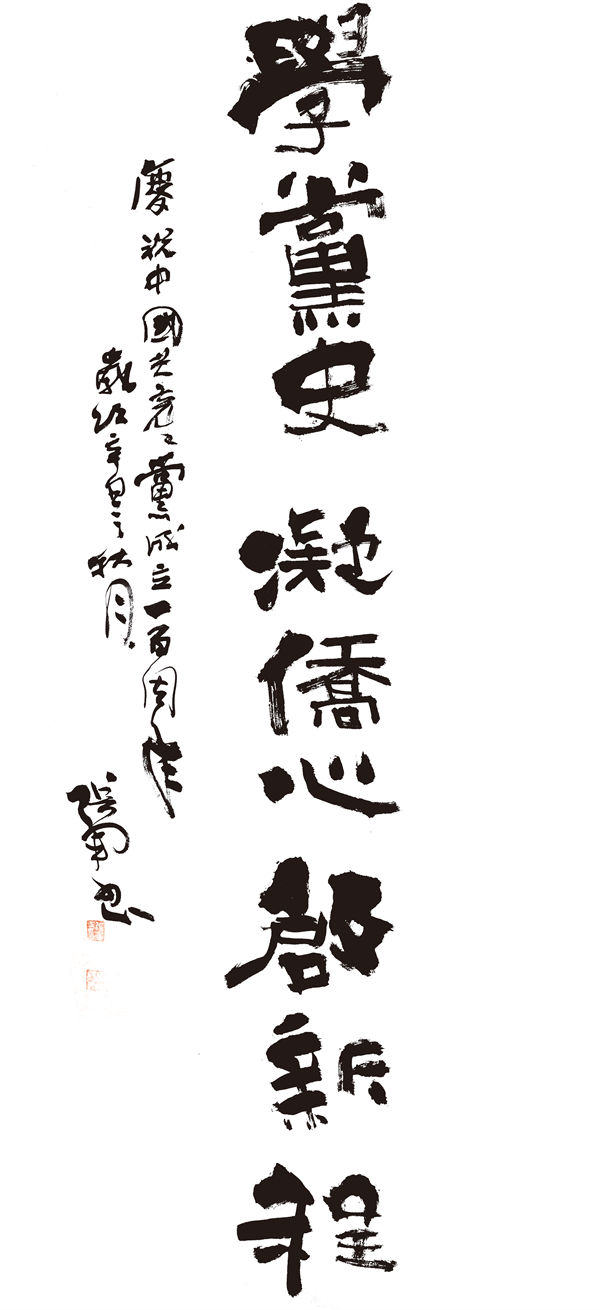 學黨史 凝僑心 啟新程
慶祝中國共產黨成立一百周年
歲次辛丑之秋月